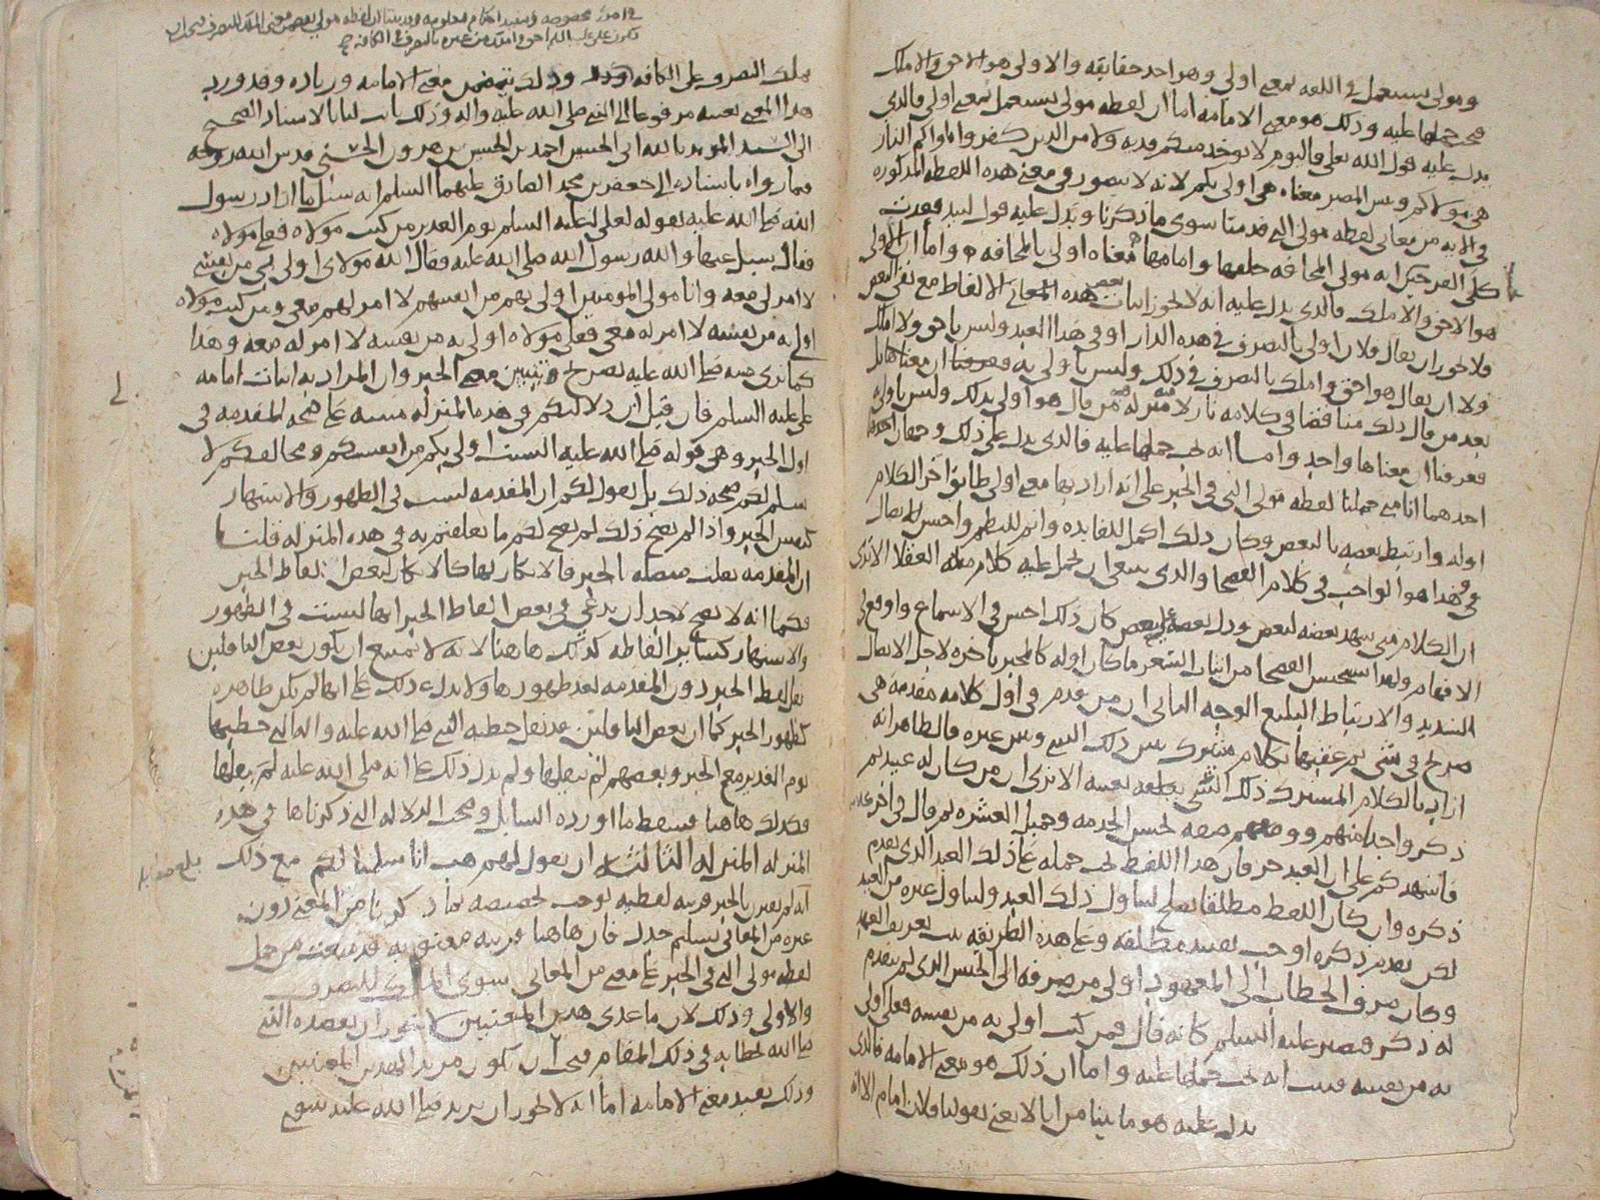 ومولى يستعمل في اللغة بمعنى اولى وهو احد حقايقه والاولى هو الاحق والاملك
فيجب حملها عليه وذلك هو معنى الامامه اما ان لفظه مولى يستعمل بمعنى اولى فالذي
يدل عليه قول الله تعالى فاليوم لا يوخذ منكم فديه ولا من الذين كفروا ماواكم النار
هي مولاكم وبيس المصير معناه هي اولى بكم لانه لا يتصور في معنى هذه اللفظه المذكوره
في الايه من معاني لفظه مولى التي قدمنا سوى ما ذكرنا ويدل عليه قول لبيد فغدت
كلى الفرجين تحسب انه مولى المخافه خلفها وامامها معناه اولى بالمخافه واما ان الاولى
هو الاحق والاملك فالذي يدل عليه انه لا يجوز اثبات بعض هذه المعاني الالفاظ مع نفي البعض
فلا يجوز ان يقال فلان اولى بالتصرف في هذه الدار او في هذا العبد وليس باحق ولا املك
ولا ان يقال هو احق واملك بالتصرف في ذلك وليس باولى به
بعد من قال ذلك مناقضا في كلامه نازلا منزله من قال هو اولى بذلك وليس باولى
فعرفنا ان معناها واحد واما انه يجب حملها عليه فالذي يدل على ذلك وجهان احدهما
احدهما انا متى حملنا لفظه مولى التي في الخبر على انه اراد بها معنى اولى طابق اخر الكلام
اوله وارتبط بعضه بالبعض وكان ذلك اكمل للفايده واتم للنظم واحسن للاتصال
وهذا هو الواجب في كلام الفصحا والذي ينبغي ان يحمل عليه كلام مثله العقلا الا ترى
ان الكلام متى شهد بعضه لبعض ودل بعضه على بعض كان ذلك احسن في الاسماع واوقع في
الافهام ولهذا استحسن الفصحا من ابيات الشعر ما كان اوله كالمخبر باخره لاجل الاتصال
الشديد والارتباط البليغ الوجه الثاني ان من قدم في اول كلامه مقدمه هي
صريح في شي ثم عقبها بكلام مشترك بين ذلك الشي وبين غيره فالظاهر انه
اراد بالكلام المشترك ذلك الشي بعينه الا ترى ان من كان له عبيد ثم
ذكر واحدا منهم ووصفهم بحسن الخدمه وجميل العشره ثم قال في اخر كلامه
فاشهدكم على ان العبد حر فان هذا اللفظ يجب حمله على ذلك العبد الذي تقدم
ذكره وان كان اللفظ مطلقا يصلح لتناول ذلك العبد ولتناول غيره من العبيد
لكن تقدم ذكره اوجب تقييد مطلقه وعلى هذه الطريقه يثبت تعريف العهد
وكان صرف الخطاب الى المعهود اولى من صرفه الى الجنس الذي لم يتقدم
له ذكر فصير عليه السلم كانه قال فمن كنت اولى به من نفسه فعلي اولى
به من نفسه فثبت انه يجب حملها عليه واما ان ذلك هو معنى الامامه فالذي
يدل عليه هو ما بينا من انا لا نعني بقولنا فلان امام الا انه
يملك التصرف على الكافه وذلك يتضمن معنى الامامه وزياده وقد ورد
هذا المعنى بعينه مرفوعا الى النبي صلى الله عليه واله وذلك ثابت لنا بالاسناد الصحيح
الى السيد المويد بالله ابي الحسين احمد بن الحسين بن هرون الحسني قدس الله روحه
فيما رواه باسناده الى جعفر بن محمد الصادق عليهما السلم انه سئل ما اراد رسول
الله صلى الله عليه بقوله لعلي عليه السلم يوم الغدير من كنت مولاه فعلي مولاه
فقال سئل عنها والله رسول الله صلى الله عليه فقال الله مولاي اولى بي من نفسي
لا امر لي معه وانا مولى المومنين اولى بهم من انفسهم لا امر لهم معي ومن كنت مولاه
اولى به من نفسه لا امر له معي فعلي مولاه اولى به من نفسه لا امر له معه وهذا
كما ترى منه صلى الله عليه تصريح وتبيين معنى الخبر وان المراد به اثبات امامه
علي عليه السلم فان قيل ان دلالتكم في هذه المنزله مبنيه على صحه المقدمه في
اول الخبر وهي قوله صلى الله عليه الست اولى بكم من انفسكم ومخالفكم لا
يسلم لكم صحه ذلك بل يقول لكم ان المقدمه ليست في الظهور والاشتهار
كنفس الخبر واذا لم يصح ذلك لم يصح لكم ما تعلقتم به في هذه المنزله قلنا
ان المقدمه نقلت متصله بالخبر فالانكار لها كالانكار لبعض الفاظ الخبر
فكما انه لا يصح لاحد ان يدعي في بعض الفاظ الخبر انها ليست في الظهور
والاشتهار كساير الفاظه كذلك هاهنا لانه لا يمتنع ان يكون بعض الناقلين
نقل لفظ الخبر دون المقدمه بعد ظهورها ولا يدل ذلك على انها لم تكن ظاهره
كظهور الخبر كما ان بعض الناقلين قد نقل خطبه النبي صلى الله عليه واله التي خطبها
يوم الغدير مع الخبر وبعضهم لم ينقلها ولم يدل ذلك على انه صلى الله عليه لم يقلها
فكذلك هاهنا فسقط ما اورده السايل وصحت الدلاله التي ذكرناها في هذه
المنزله المنزله الثالثه ان يقول لهم هب انا سلمنا لكم مع ذلك
انه لم يقترن بالخبر قرينه لفظيه توجب تخصيصه بما ذكرنا من المعنى دون
غيره من المعاني تسليم جدل فان هاهنا قرينه معنويه قد منعت من حمل
لفظه مولى التي في الخبر على معنى من المعاني سوى المالك للتصرف
والاولى وذلك لان ما عدى هذين المعنيين لا يجوز ان يقصده النبي
صلى الله عليه بخطابه في ذلك المقام فيجب ان يكون مريدا لهذين المعنيين
وذلك يفيد معنى الامامه اما انه لا يجوز ان يريد صلى الله عليه سوى